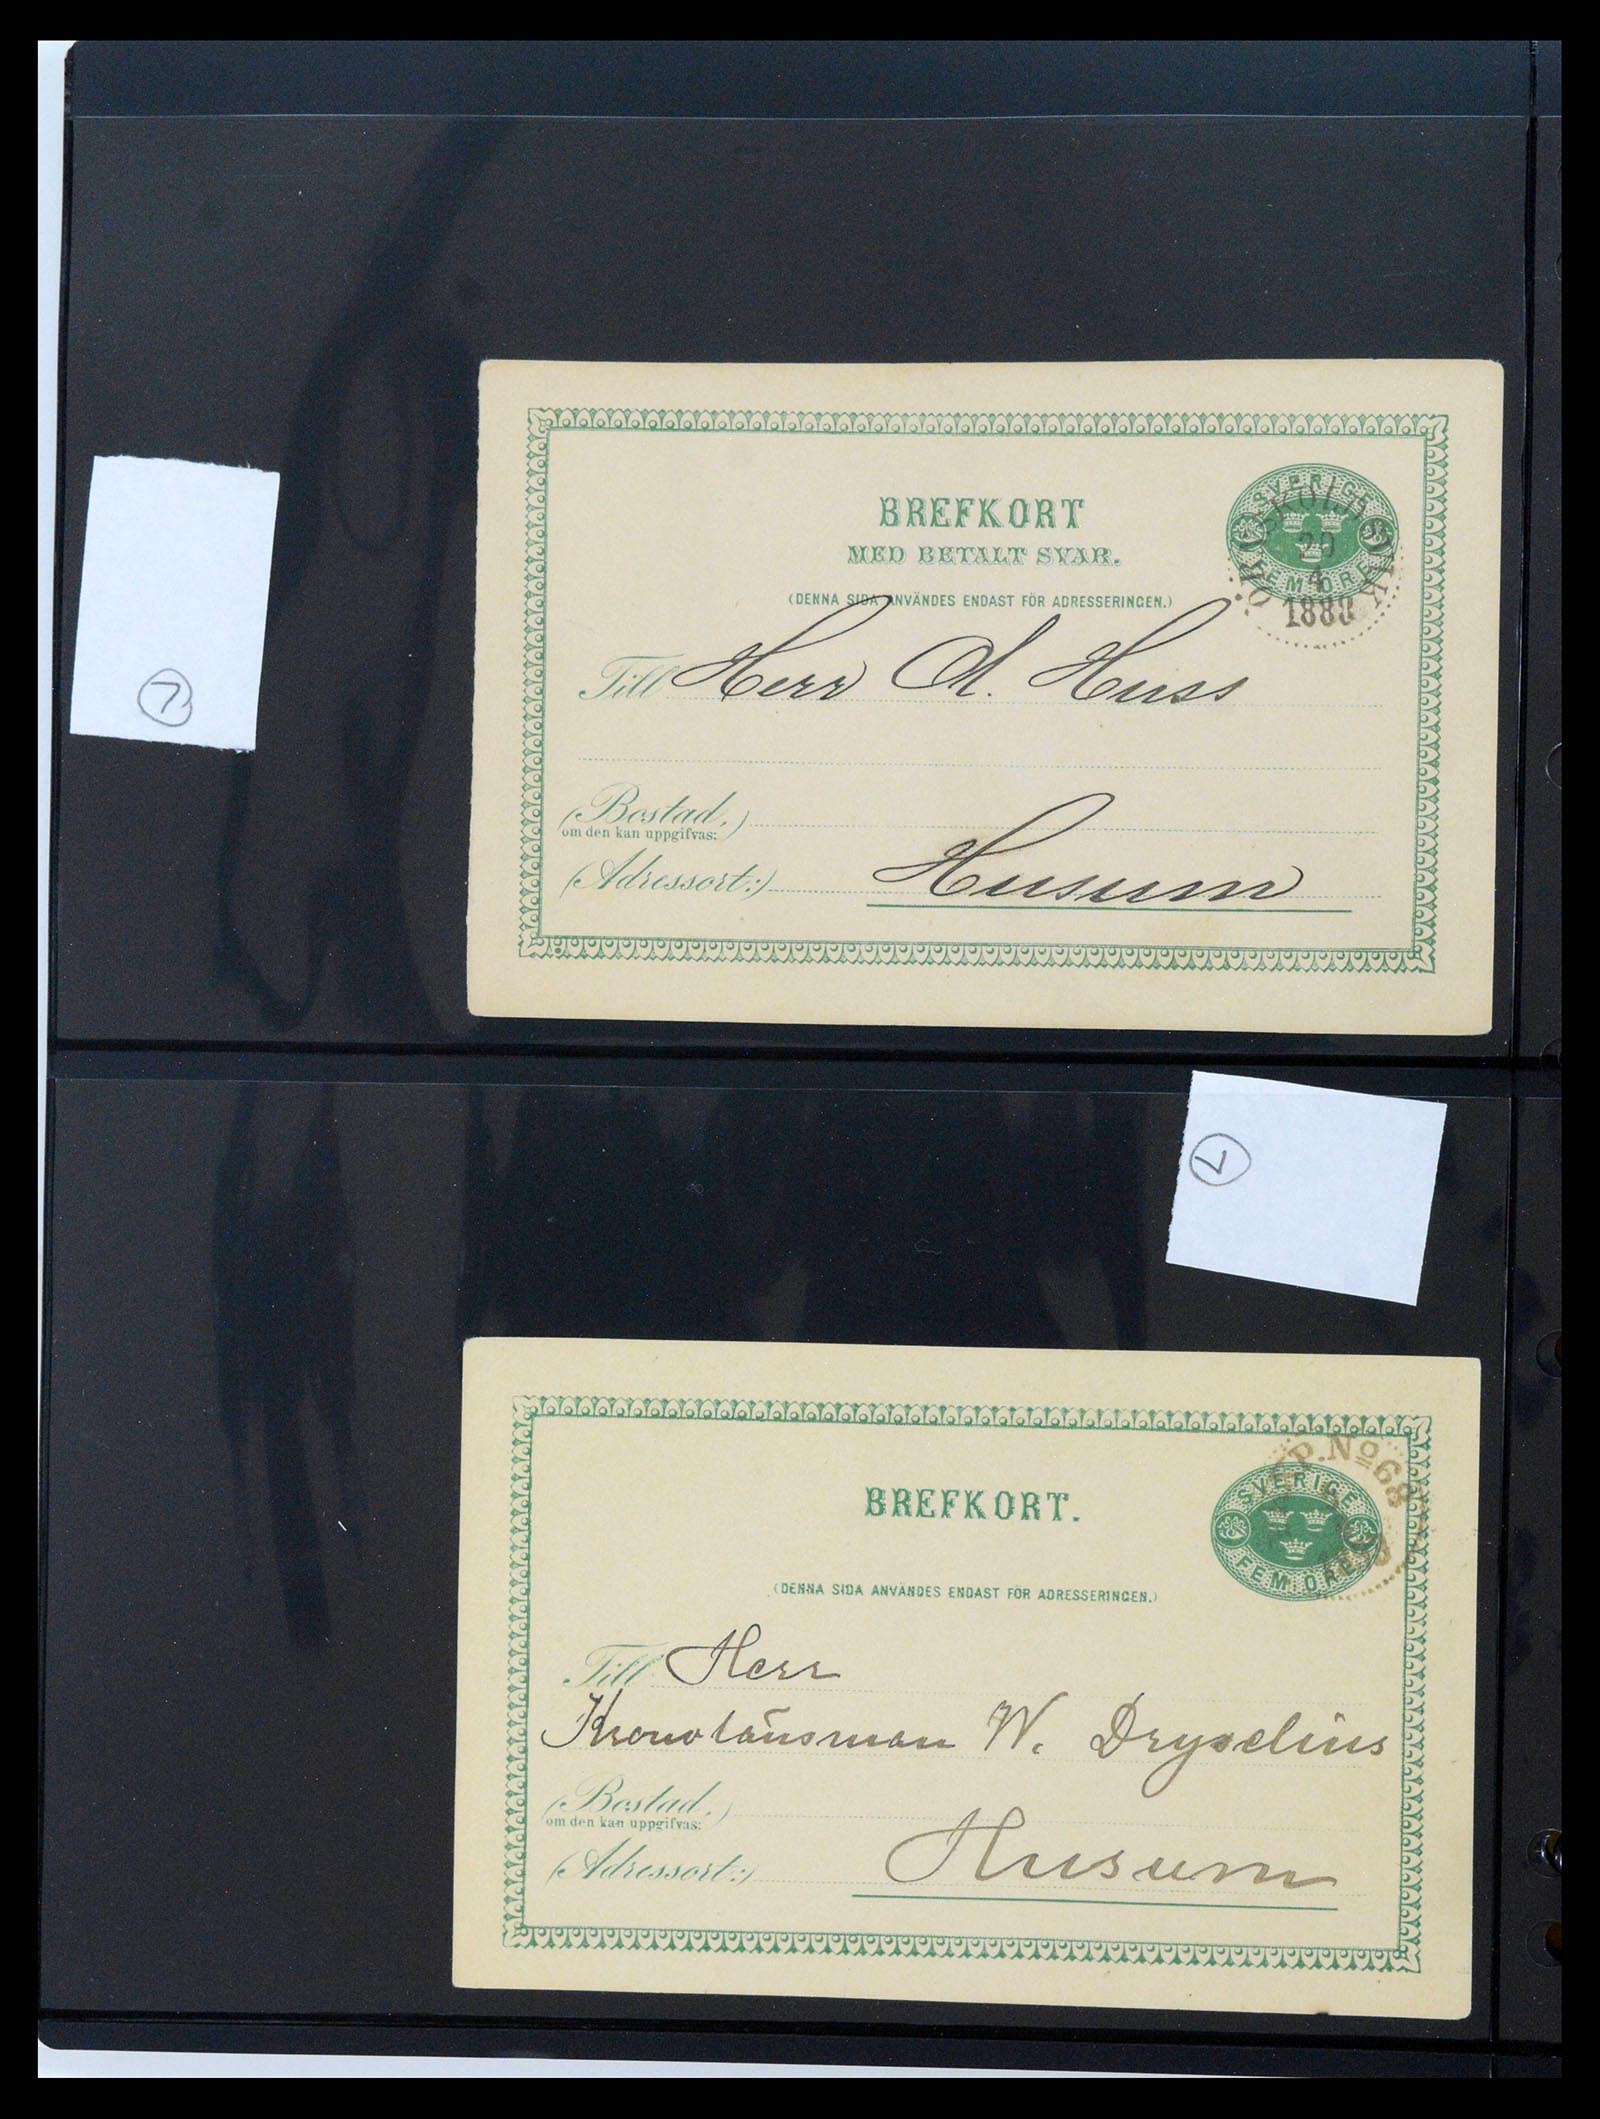 BREFKORT
MED BETALT SVAR.
(DENNA SIDA ANVÄNDES ENDAST FÖR ADRESSERINGEN.)
SVERIGE
FEM ÖRE
ÖRNSKÖLDSVIK
20
4
Till Herr A. Huss
(Bostad,)
om den kan uppgifvas:
(Adressort:) Husum
7
7
BREFKORT.
(DENNA SIDA ANVÄNDES ENDAST FÖR ADRESSERINGEN.)
SVERIGE
FEM ÖRE
P. No 68
Till Herr
Kronolänsman W. Dryselius
(Bostad,)
om den kan uppgifvas:
(Adressort:) Husum